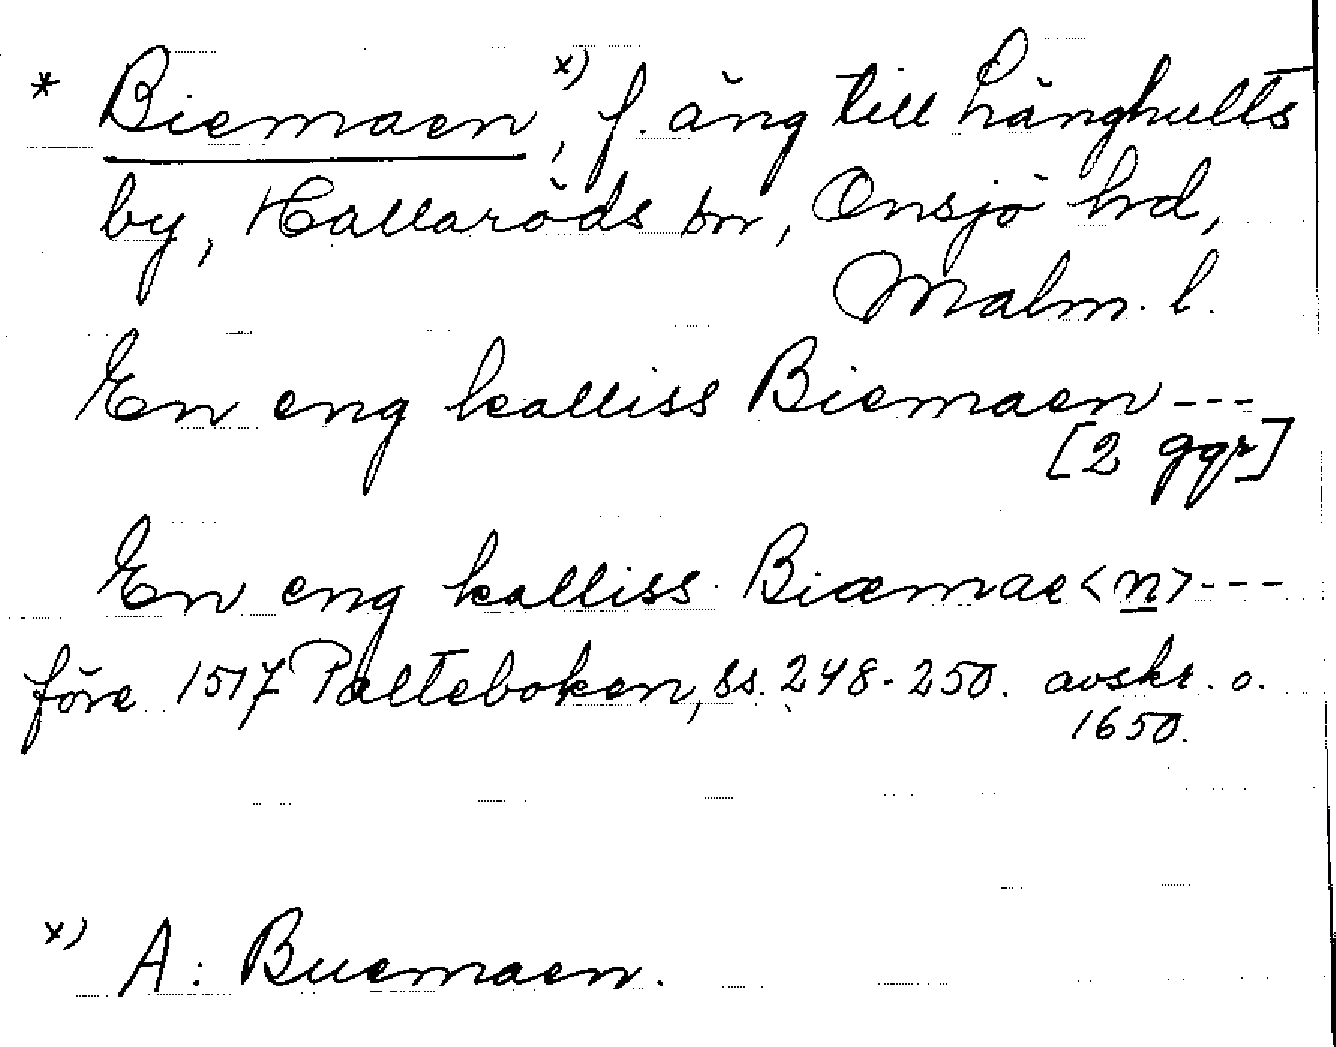 * Biemaen x), f. äng till Långhults
by, Hallaröds sn, Onsjö hd,
Malm. l.
En eng kalliss Biemaen ---
[2 ggr]
En eng kalliss Biæmae<n> ---
före 1517 Palteboken, ss. 248-250. avskr. o.
1650.
x) A: Buemaen.